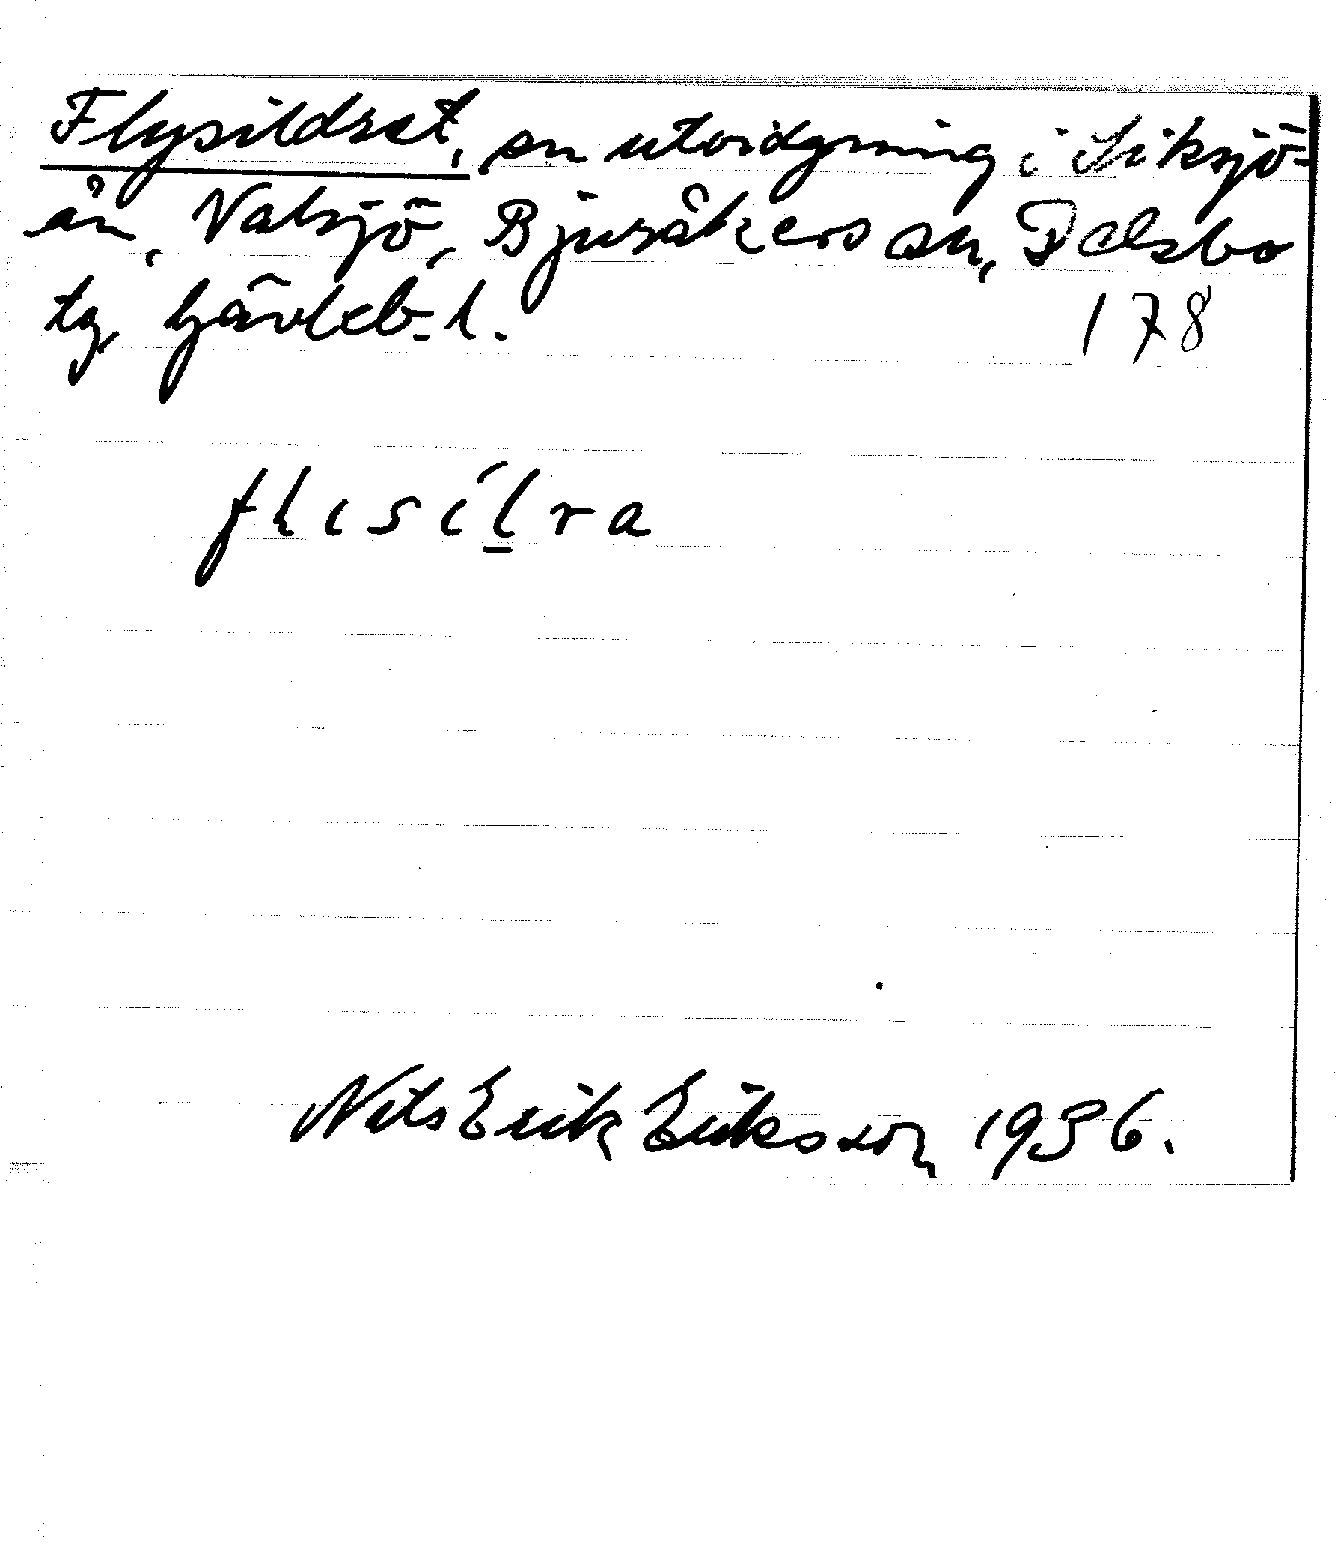 Flysildret, en utvidgning i Siksjö-
ån, Valsjö, Bjuråkers sn, Delsbo
tg, Gävleb. l. 178
flısíl̲ra
Nils Erik Eriksson 1936.